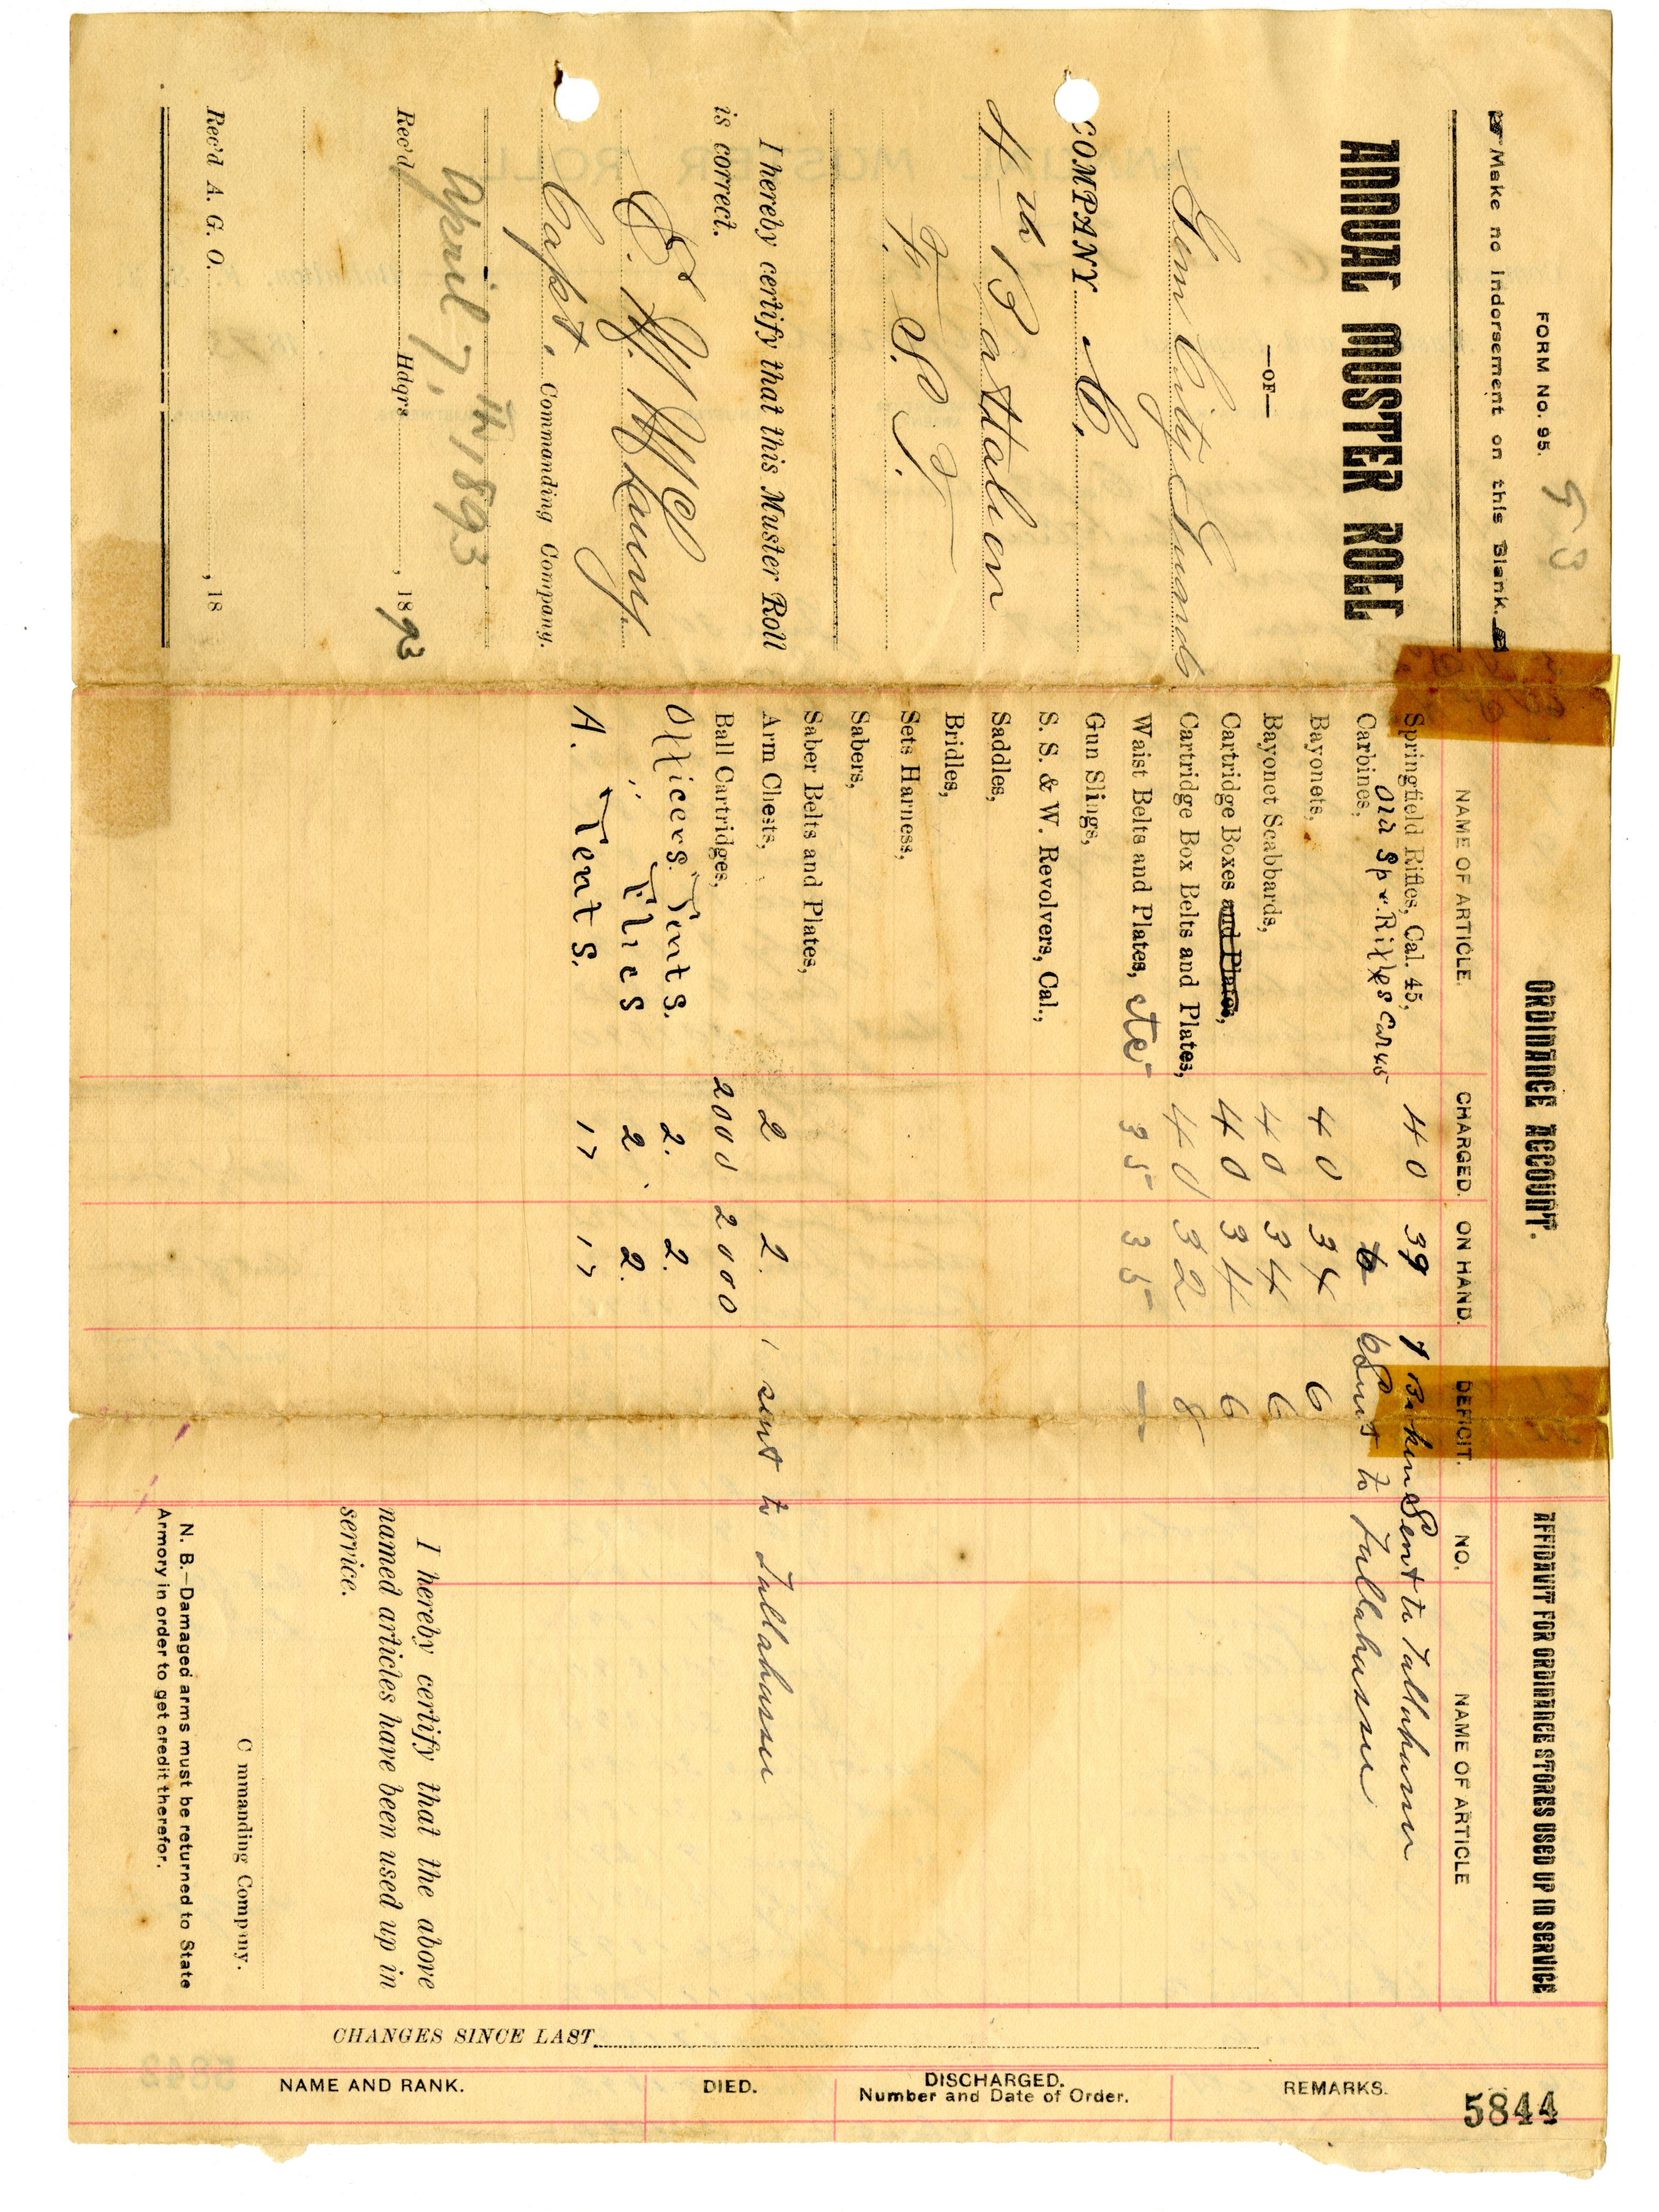 FORM No. 95.
53
Make no indorsement on this Blank.
ANNUAL MUSTER ROLL
—OF—
Gem City Guards
COMPANY C,
4th Battalion
F. S. T.
I hereby certify that this Muster Roll
is correct.
Capt. Commanding Company.
April 7, th 1893
Rec'd Hdqrs , 1893
Rec'd A. G. O. , 18
ORDNANCE ACCOUNT.
NAME OF ARTICLE. CHARGED. ON HAND. DEFICIT.
Springfield Rifles, Cal. 45, 40 39 1 Broken Sent to Tallahassee
Old Spr. Rifles Cal 45
Carbines, 6 6 Sent to Tallahassee
Bayonets, 40 34 6
Bayonet Scabbards, 40 34 6
Cartridge Boxes and Plates, 40 34 6
Cartridge Box Belts and Plates, 40 32 8
Waist Belts and Plates, etc 35 35 —
Gun Slings,
S. S. & W. Revolvers, Cal.,
Saddles,
Bridles,
Sets Harness,
Sabers,
Saber Belts and Plates,
Arm Chests, 2 2. 1 sent to Tallahassee
Ball Cartridges, 2000 2000
Officers. Tents. 2. 2.
" Flies 2. 2.
A. Tents. 17 17
AFFIDAVIT FOR ORDNANCE STORES USED UP IN SERVICE
NO. NAME OF ARTICLE
I hereby certify that the above
named articles have been used up in
service.
C mmanding Company.
N. B.—Damaged arms must be returned to State
Armory in order to get credit therefor.
CHANGES SINCE LAST
NAME AND RANK. DIED. DISCHARGED. REMARKS.
Number and Date of Order.
5844